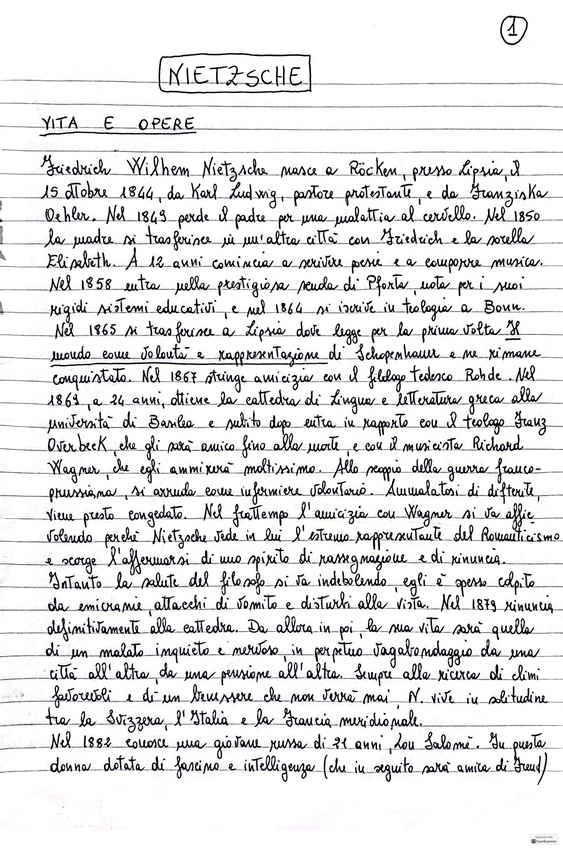 1
NIETZSCHE
VITA E OPERE
Friedrich Wilhem Nietzsche nasce a Röcken, presso Lipsia, il
15 ottobre 1844, da Karl Ludwig, pastore protestante, e da Franziska
Oehler. Nel 1849 perde il padre per una malattia al cervello. Nel 1850
la madre si trasferisce in un'altra città con Friedrich e la sorella
Elisabeth. A 12 anni comincia a scrivere poesie e a comporre musica.
Nel 1858 entra nella prestigiosa scuola di Pforta, nota per i suoi
rigidi sistemi educativi, e nel 1864 si iscrive in teologia a Bonn.
Nel 1865 si trasferisce a Lipsia dove legge per la prima volta Il
mondo come volontà e rappresentazione di Schopenhauer e ne rimane
conquistato. Nel 1867 stringe amicizia con il filologo tedesco Rohde. Nel
1869, a 24 anni, ottiene la cattedra di lingua e letteratura greca alla
università di Basilea e subito dopo entra in rapporto con il teologo Franz
Overbeck, che gli sarà amico fino alla morte, e con il musicista Richard
Wagner, che egli ammirerà moltissimo. Allo scoppio della guerra franco-
prussiana, si arruola come infermiere volontario. Ammalatosi di difterite,
viene presto congedato. Nel frattempo l'amicizia con Wagner si va affie
volendo perché Nietzsche vede in lui l'estremo rappresentante del Romanticismo
e scorge l'affermarsi di uno spirito di rassegnazione e di rinuncia.
Intanto la salute del filosofo si va indebolendo, egli è spesso colpito
da emicranie, attacchi di vomito e disturbi alla vista. Nel 1879 rinuncia
definitivamente alla cattedra. Da allora in poi, la sua vita sarà quella
di un malato inquieto e nervoso, in perpetuo vagabondaggio da una
città all'altra, da una pensione all'altra. Sempre alla ricerca di climi
favorevoli e di un benessere che non verrà mai, N. vive in solitudine
tra la Svizzera, l'Italia e la Francia meridionale.
Nel 1882 conosce una giovane russa di 21 anni, Lou Salomé. In questa
donna dotata di fascino e intelligenza (che in seguito sarà amica di Freud)
CamScanner